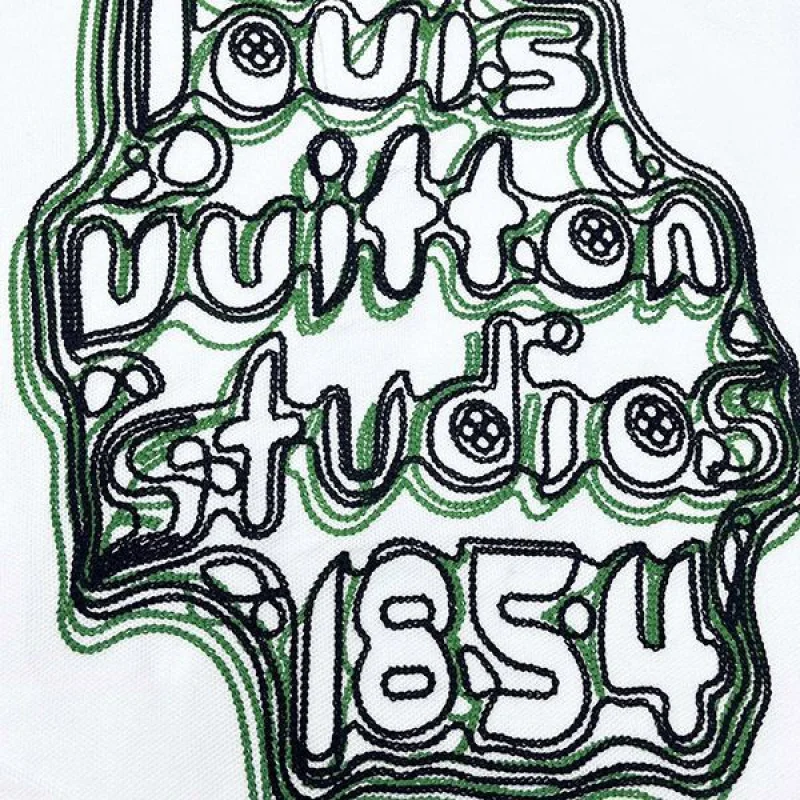 louis
vuitton
studios
1854